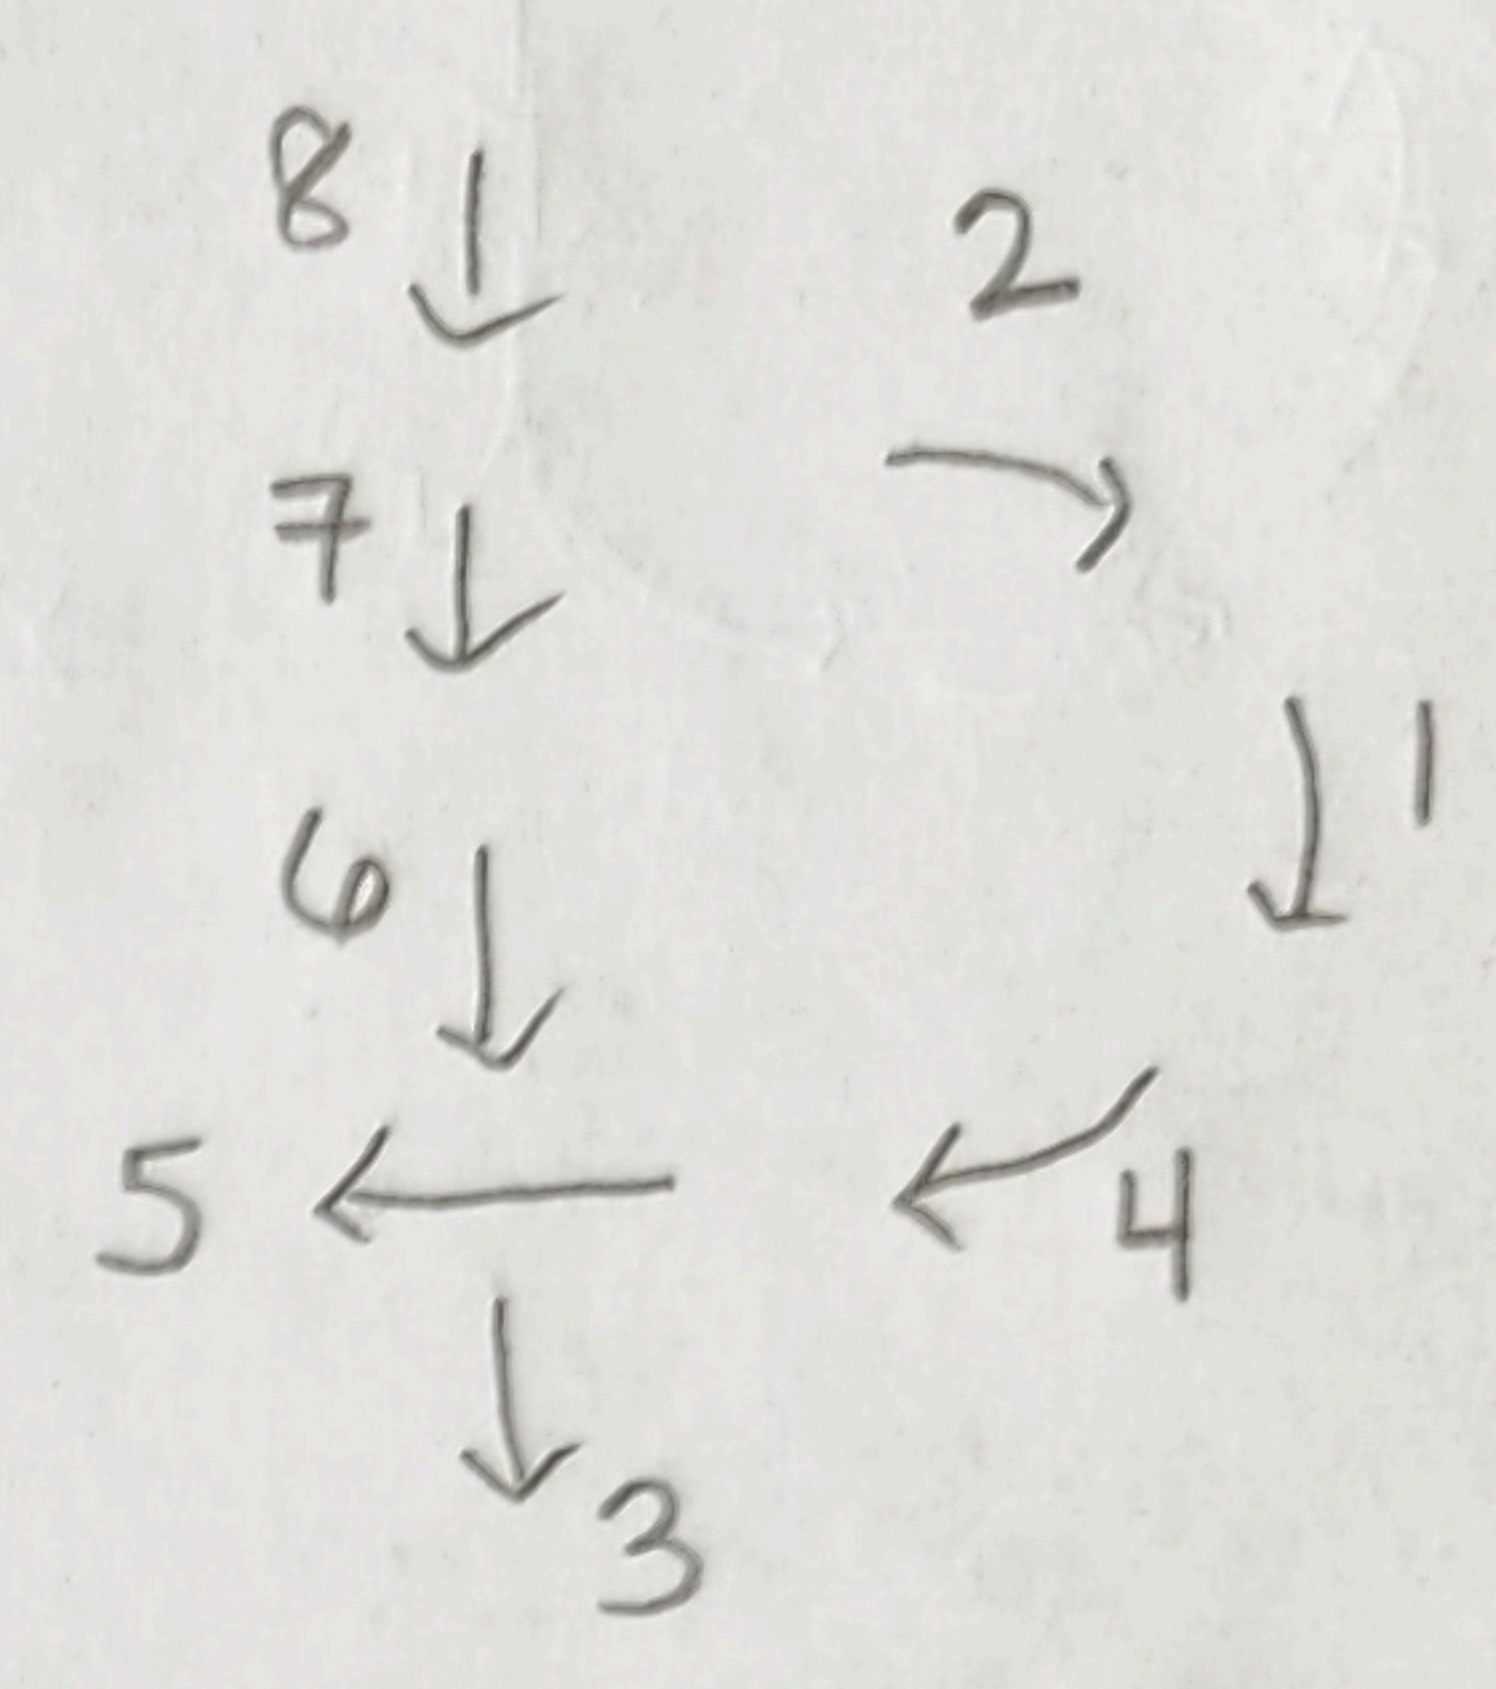 8 ↓
2
→
7 ↓
↓ 1
6 ↓
5 ← ← 4
↓ 3